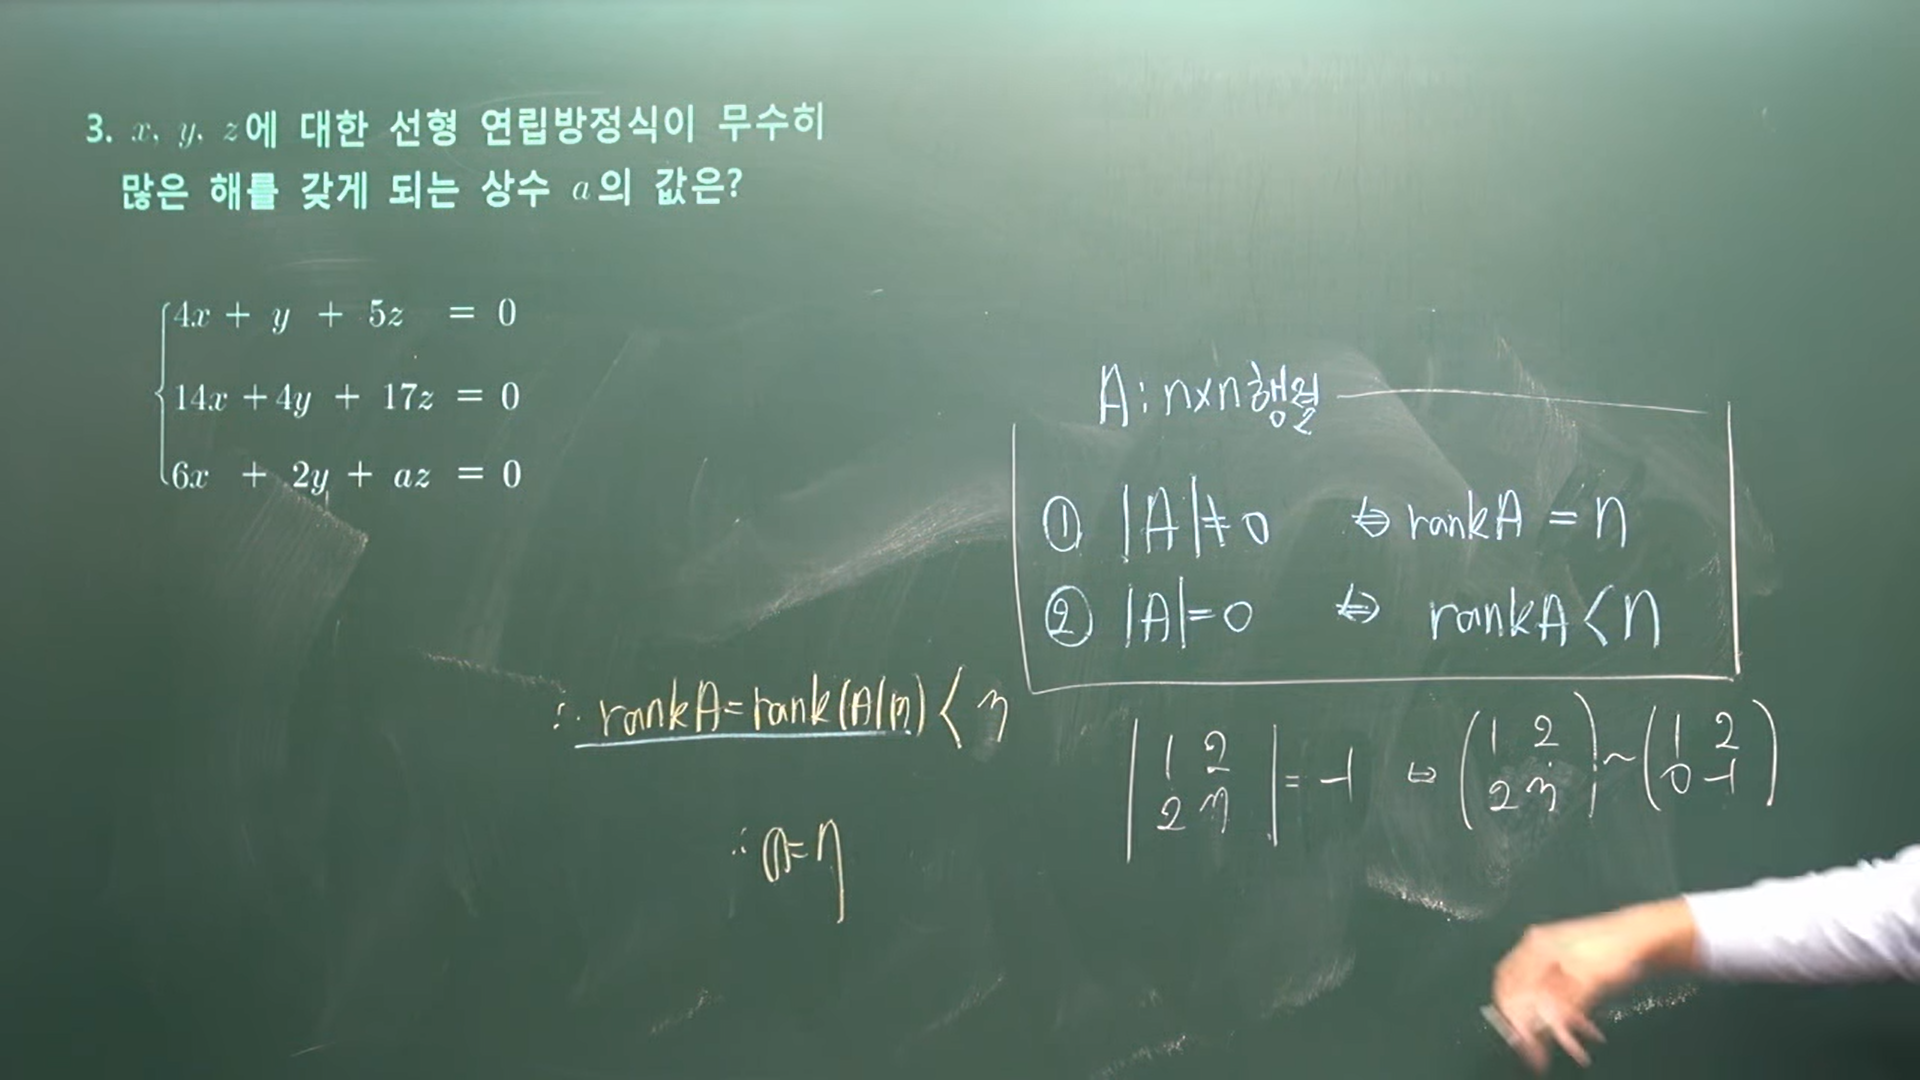 3. x, y, z에 대한 선형 연립방정식이 무수히
많은 해를 갖게 되는 상수 a의 값은?
4x + y + 5z = 0
14x + 4y + 17z = 0
6x + 2y + az = 0
A : n×n행렬
① |A| ≠ 0 ⇔ rankA = n
② |A| = 0 ⇔ rankA < n
∴ rankA = rank(A|B) < 3
| 1 2 | = -1 ⇔ ( 1 2 ) ~ ( 1 2 )
| 2 3 | ( 2 3 ) ( 0 -1 )
∴ a = 7